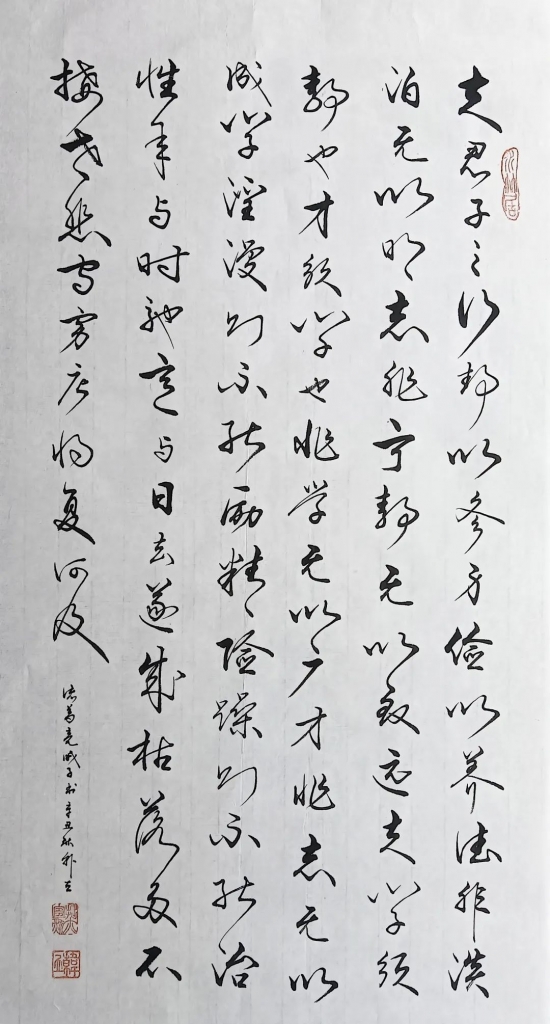 夫君子之行静以修身俭以养德非淡
泊无以明志非宁静无以致远夫学须
静也才须学也非学无以广才非志无以
成学淫漫则不能励精险躁则不能治
性年与时驰意与日去遂成枯落多不
接世悲守穷庐将复何及
诸葛亮诫子书辛丑秋